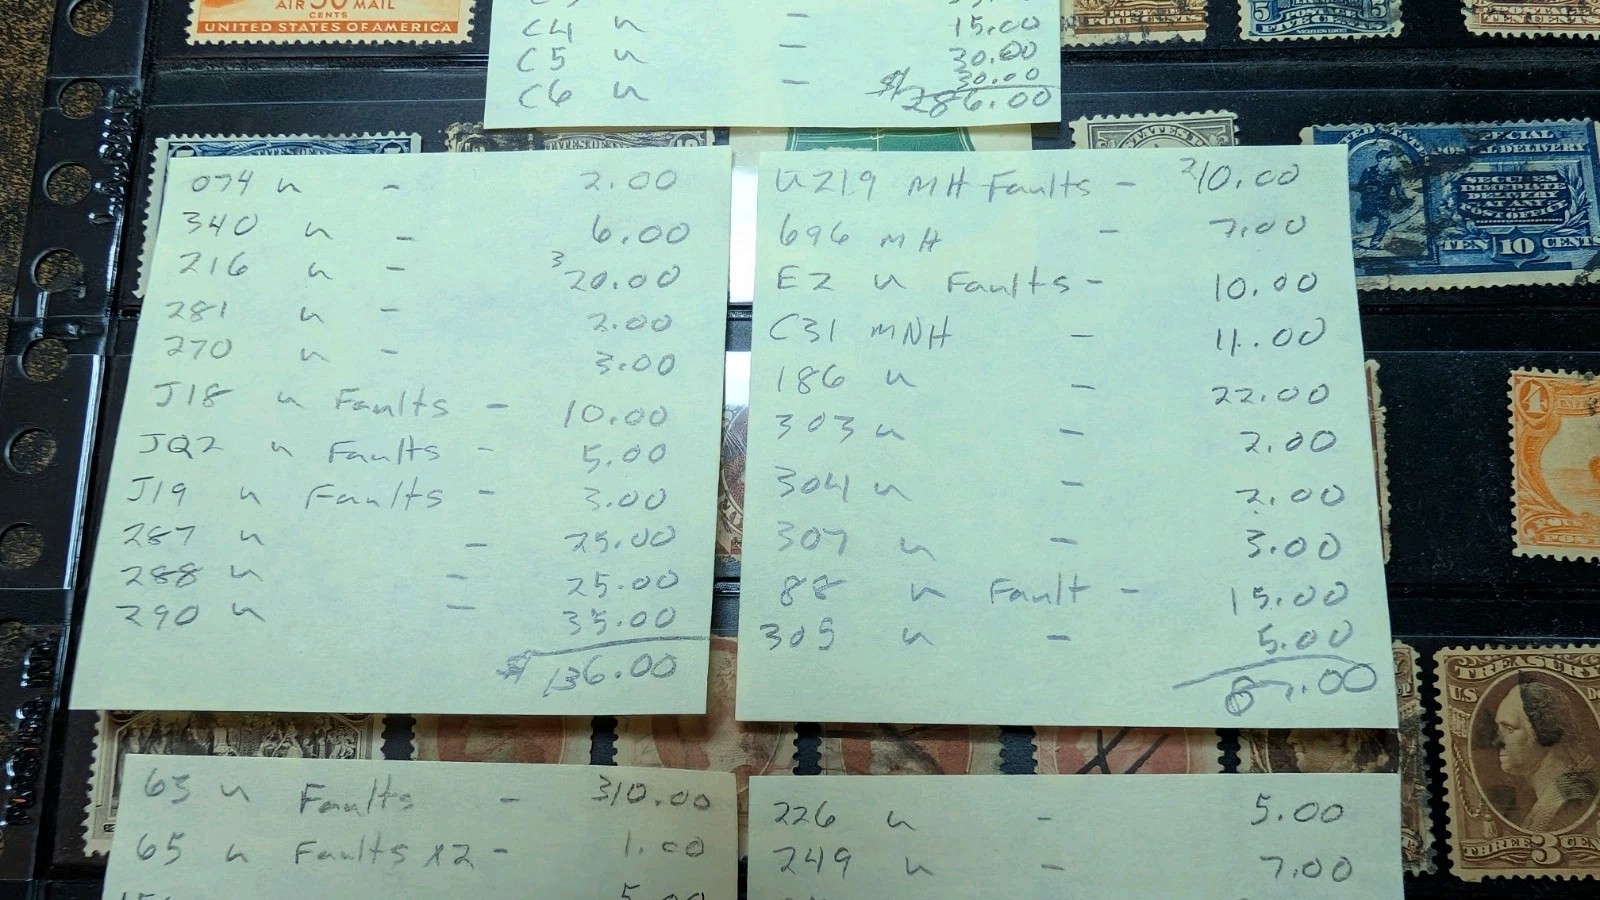 AIR 30 MAIL
CENTS
UNITED STATES OF AMERICA
C4 u - 15.00
C5 u - 30.00
C6 u - 30.00
$286.00
POSTAGE
FOUR CENTS
5 FIVE CENTS 5
TEN CENTS
074 u - 2.00
340 u - 6.00
216 u - 3 20.00
281 u - 2.00
270 u - 3.00
J18 u Faults - 10.00
JQ2 u Faults - 5.00
J19 u Faults - 3.00
287 u - 25.00
288 u - 25.00
290 u - 35.00
$136.00
U219 MH Faults - 2 10.00
696 MH - 7.00
E2 u Faults - 10.00
C31 MNH - 11.00
186 u - 22.00
303 u - 2.00
304 u - 2.00
307 u - 3.00
88 u Fault - 15.00
305 u - 5.00
87.00
SPECIAL
POSTAL DELIVERY
SECURES
IMMEDIATE
DELIVERY
AT ANY
POST OFFICE
TEN 10 CENTS
4
63 u Faults - 3 10.00
65 u Faults x2 - 1.00
5.00
226 u - 5.00
249 u - 7.00
TREASURY
U.S.
THREE 3 CEN